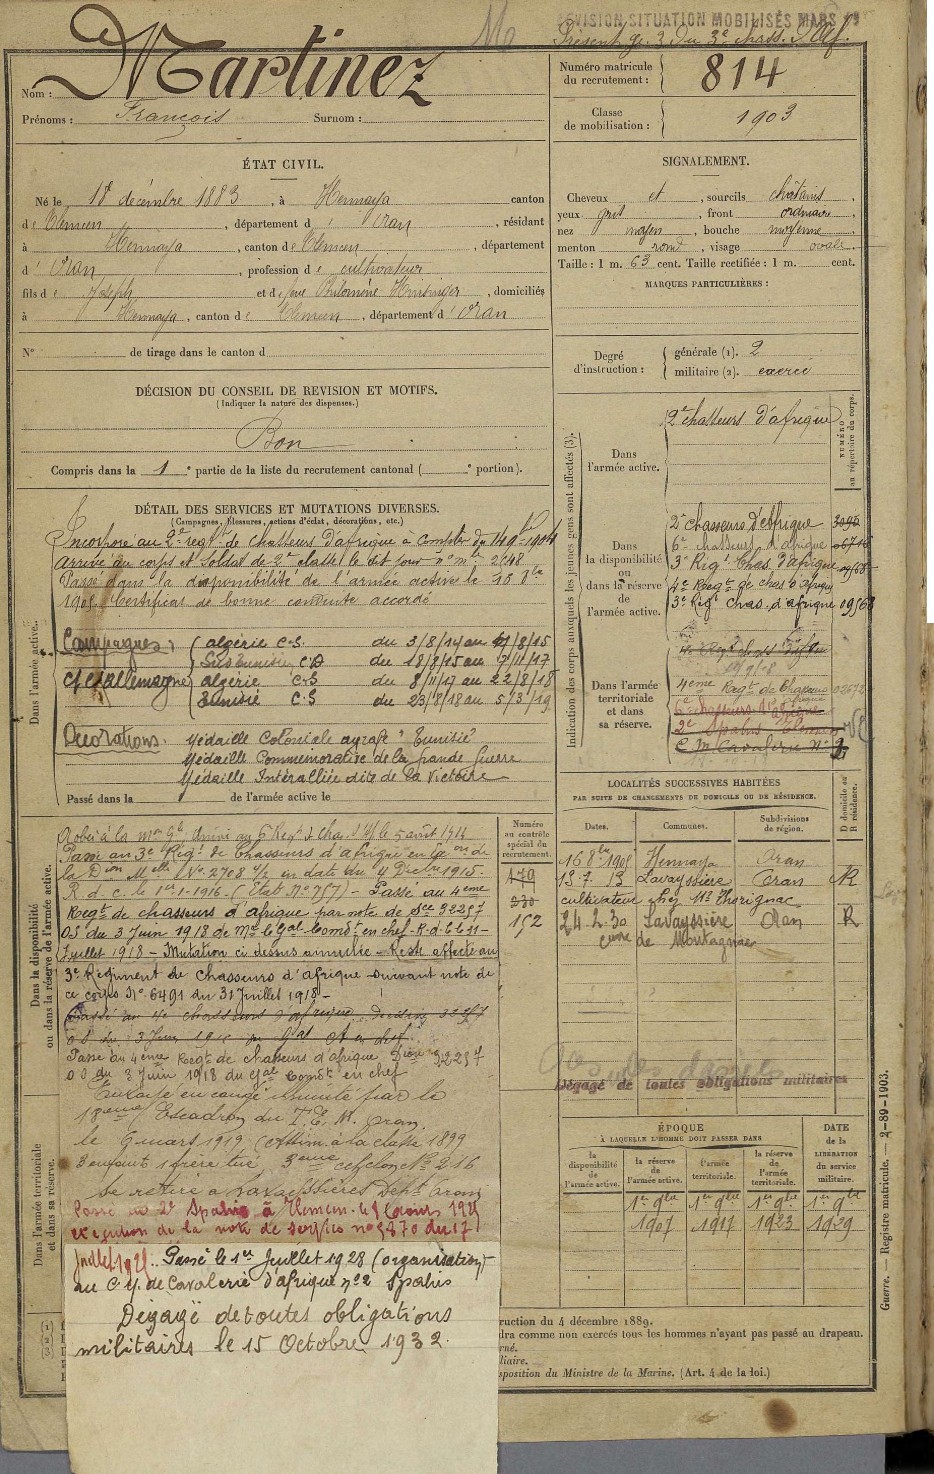 REVISION SITUATION MOBILISÉS MARS
Présent gr. 3 du 3e chass. d'Af.
Nom : Martinez
Prénoms : François Surnom :
Numéro matricule
du recrutement : 814
Classe
de mobilisation : 1903
ÉTAT CIVIL.
Né le 18 décembre 1883, à Hennaya canton
de Tlemcen, département d'Oran, résidant
à Hennaya, canton de Tlemcen, département
d'Oran, profession de cultivateur
fils de Joseph et de feue Philomène, domiciliés
à Hennaya, canton de Tlemcen, département d'Oran
N° de tirage dans le canton d
SIGNALEMENT.
Cheveux et, sourcils châtains
yeux gris, front ordinaire,
nez moyen, bouche moyenne
menton rond, visage ovale.
Taille : 1 m. 63 cent. Taille rectifiée : 1 m. cent.
MARQUES PARTICULIÈRES :
Degré
d'instruction :
générale (1). 2
militaire (2). exercé
DÉCISION DU CONSEIL DE REVISION ET MOTIFS.
(Indiquer la nature des dispenses.)
Bon
Compris dans la 1e partie de la liste du recrutement cantonal ( e portion).
DÉTAIL DES SERVICES ET MUTATIONS DIVERSES.
(Campagnes, blessures, actions d'éclat, décorations, etc.)
Dans l'armée active.
Incorporé au 2e régt de chasseurs d'afrique à compter du 14 9bre 1904
arrivé au corps et soldat de 2e classe le dit jour n° mle 2648
Passé dans la disponibilité de l'armée active le 10 8bre
1905 Certificat de bonne conduite accordé
Campagnes : algérie C.S. du 3/8/14 au 17/8/15
Sud tunisien C.D du 18/8/15 au 7/11/17
C/ l'allemagne algérie C.S du 8/11/17 au 22/8/18
tunisie C.S du 23/8/18 au 5/3/19
Décorations. Médaille Coloniale agrafe "Tunisie"
Médaille Commémorative de la grande Guerre
Médaille Interalliée dite de la Victoire
Passé dans la de l'armée active le
Indication des corps auxquels les jeunes gens sont affectés (3).
NUMÉRO
au répertoire du corps.
Dans
l'armée active.
2e chasseurs d'afrique
Dans
la disponibilité
ou
dans la réserve
de
l'armée active.
2e chasseurs d'afrique
6e chasseurs d'afrique
3e Rég. Chas. d'afrique
4e Regt de chas d'afrique
3e Rég. Chas. d'afrique 09568
Dans l'armée
territoriale
et dans
sa réserve.
4eme Regt de Chasseurs 02672
6e chasseurs d'afrique
2e Spahis Tlemcen
C. M. Cavalerie N° 2
Dans la disponibilité
ou dans la réserve de l'armée active.
Numéro
au contrôle
spécial du
recrutement.
179
230
152
Passé au 3e Régt de Chasseurs d'afrique en
la Don Melle No. 2708 en date du 4 Dbre 1915.
R. d. c. le 1er-1-1916. (Etat No 757) - Passé au 4eme
Regt de chasseurs d'afrique par note de Sce 32257
OS du 3 Juin 1918 de Mr le Gal Comdt en chef - R.d.c le 11-
Juillet 1918 - Mutation ci dessus annulée - Reste affecté au
3e Régiment de chasseurs d'afrique suivant note de
ce corps No 6491 du 31 Juillet 1918 -
Passé au 4e chasseurs d'afrique. Décision 32257
Passé au 4eme Regt de chasseurs d'afrique Don 32257
OS du 3 Juin 1918 du Gal Comdt en chef
Envoyé en congé illimité par le
18eme Escadron du T. E. M. Oran
le 6 mars 1919 (Assim. à la classe 1899
3 enfants 1 frère tué, 3eme echelon No 216
Se retire à Lavayssière Dept Oran
Dans l'armée territoriale
et dans sa réserve.
Passé au 2e Spahis à Tlemcen
exécution de la note de service no 5470 du 17
Juillet 1925. Passé le 1er Juillet 1928 (organisation)
au C. M. de Cavalerie d'afrique no 2 Spahis
Dégagé de toutes obligations
militaires le 15 Octobre 1932.
LOCALITÉS SUCCESSIVES HABITÉES
PAR SUITE DE CHANGEMENTS DE DOMICILE OU DE RÉSIDENCE.
Dates. Communes. Subdivisions
de région. D domicile ou
R résidence.
16 8bre 1905 Hennaya Oran
13.7.13 Lavayssière Oran R
cultivateur chez Mr Thorignac
24.2.30 Lavayssière Oran R
de Montagnac
Dégagé de toutes obligations militaires
ÉPOQUE
À LAQUELLE L'HOMME DOIT PASSER DANS
la
disponibilité
de
l'armée active.
la réserve
de
l'armée active.
l'armée
territoriale.
la réserve
de
l'armée
territoriale.
DATE
de la
LIBÉRATION
du service
militaire.
1er 8bre 1907
1er 8bre 1917
1er 8bre 1923
1er 8bre 1929
ruction du 4 décembre 1889.
dra comme non exercés tous les hommes n'ayant pas passé au drapeau.
rné.
liaire.
sposition du Ministre de la Marine. (Art. 4 de la loi.)
(1)
(2)
(3)
Guerre. — Registre matricule. — 2-89-1903.